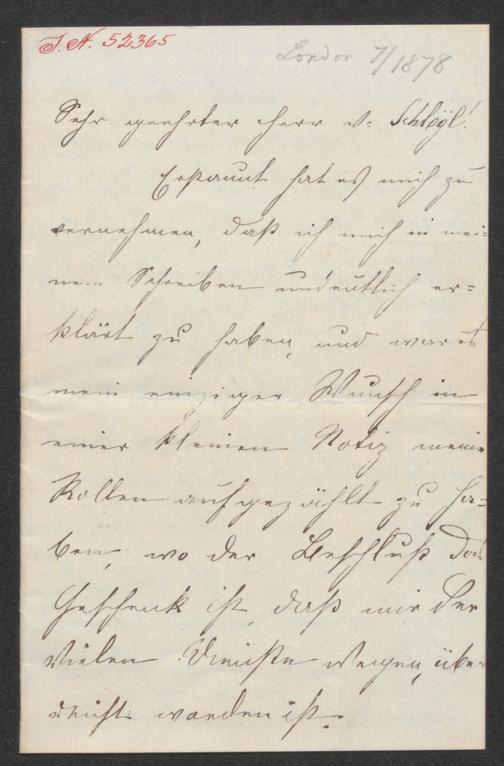 I. N. 52365
London 7/1878
Sehr geehrter Herr v. Schlögl!
Erstaunt hat es mich zu
vernehmen, daß ich mich in mei=
nem Schreiben undeutlich er=
klärt zu haben, und war es
mein einziger Wunsch in
einer kleinen Notiz meine
Rollen aufgezählt zu ha=
ben, wo der Beschluß das
Geschenk ist, daß mir der
vielen Dienste wegen, über
reicht worden ist.